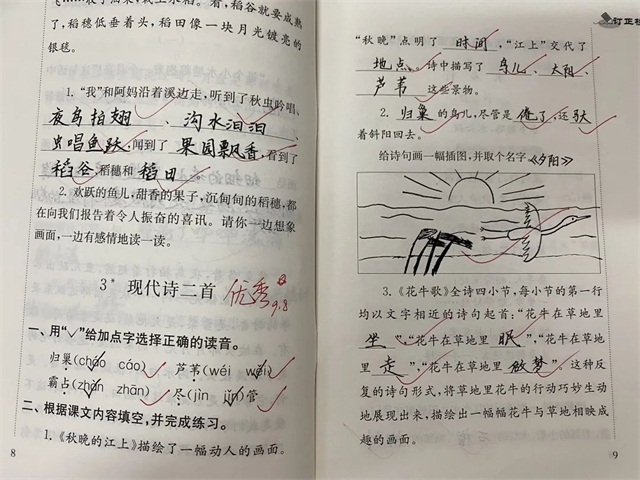 了,稻穗低垂着头,稻田像一块月光镀亮的
银毯。
1.“我”和阿妈沿着溪边走,听到了秋虫吟唱、
夜鸟拍翅、沟水汩汩
出唱鱼跃,闻到了果园飘香,看到了
稻谷、稻穗和稻田。
2.欢跃的鱼儿,甜香的果子,沉甸甸的稻穗,都
在向我们报告着令人振奋的喜讯。请你一边想象
画面,一边有感情地读一读。
3* 现代诗二首 优秀 9.8
一、用“√”给加点字选择正确的读音。
归巢(cháo cáo) 芦苇(wéi wěi)
霸占(zhàn zhān) 尽(jìn jǐn)管
二、根据课文内容填空,并完成练习。
1.《秋晚的江上》描绘了一幅动人的画面。
8
订正
“秋晚”点明了时间,“江上”交代了
地点。诗中描写了鸟儿、太阳、
芦苇这些景物。
2.归巢的鸟儿,尽管是倦了,还驮
着斜阳回去。
给诗句画一幅插图,并取个名字《夕阳》
3.《花牛歌》全诗四小节,每小节的第一行
均以文字相近的诗句起首:“花牛在草地里
坐”,“花牛在草地里眠”,“花牛在草地
里走”,“花牛在草地里做梦”。这种反
复的诗句形式,将草地里花牛的行动巧妙生动
地展现出来,描绘出一幅幅花牛与草地相映成
趣的画面。
9